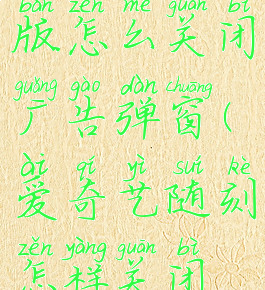 bǎn zěn me guān bì
版怎么关闭
guǎng gào dàn chuāng
广告弹窗(
ài qí yì suí kè
爱奇艺随刻
zěn yàng guān bì
怎样关闭